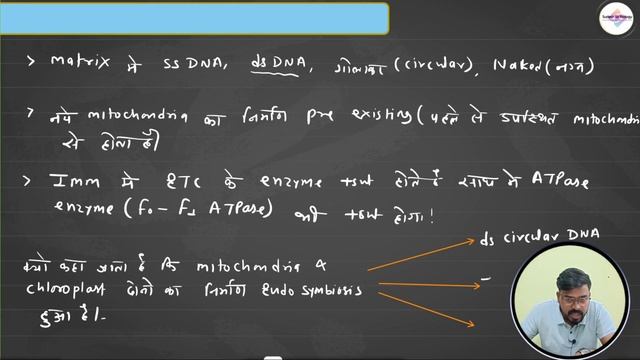 > Matrix में SSDNA, dsDNA, गोलाकार (circular), Naked (नग्न)
> नये mitochondria का निर्माण pre existing (पहले से उपस्थित mitochondri
से होता है)
> Imm में ETC के enzyme +nt होते है साथ में ATPase
enzyme (F0 - F1 ATPase) भी +nt होगा!
क्यों कहा जाता है कि mitochondria &
chloroplast दोनों का निर्माण Endosymbiosis
हुआ है।-
ds circular DNA
-